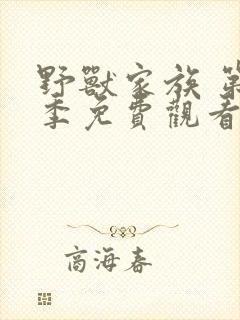 野獸家族 第
季免費觀看
商海春